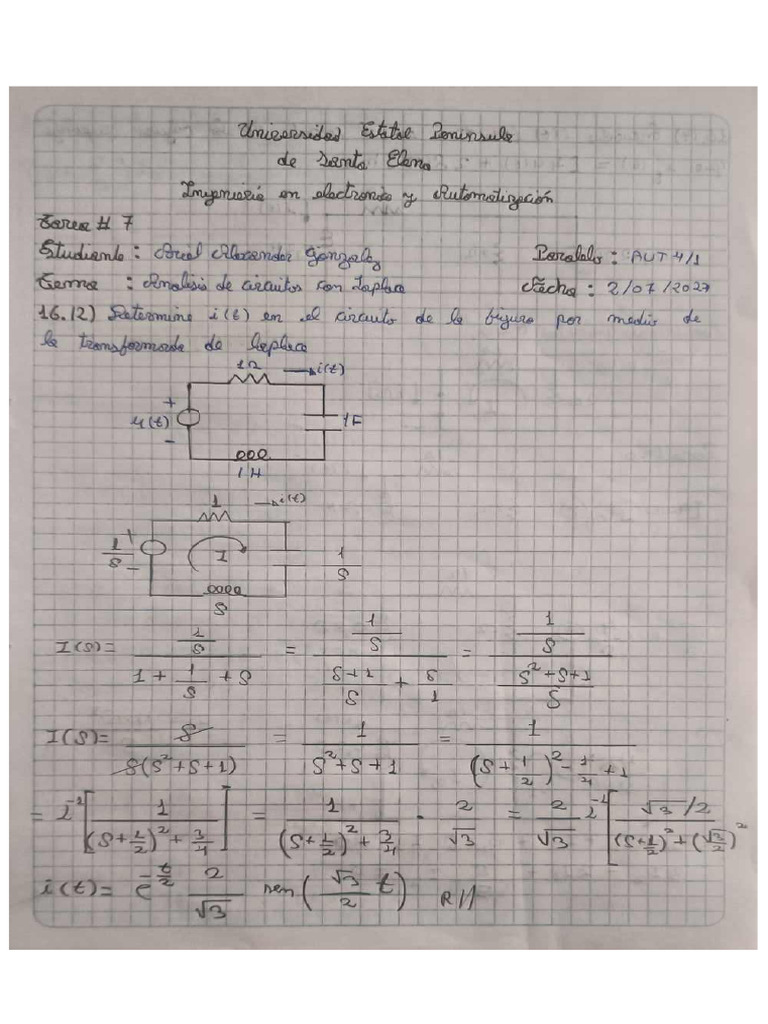 Universidad Estatal Peninsula
de Santa Elena
Ingeniería en electronica y Automatización
Tarea # 7
Estudiante : Ariel Alexander Gonzalez Paralelo : AUT 4/1
Tema : Analisis de circuitos con Laplace Fecha : 2/07/2027
16.12) Determine i(t) en el circuito de la figura por medio de
la transformada de Laplace
1Ω → i(t)
+
u(t) 1F
-
1H
1 → i(t)
+
1/S I 1/S
-
S
I(S) = (1/S)/(1 + 1/S + S) = (1/S)/((S+1)/S + S/1) = (1/S)/((S²+S+1)/S)
I(S) = S/(S(S²+S+1)) = 1/(S²+S+1) = 1/((S+1/2)² - 1/4 + 1)
= L⁻¹[1/((S+1/2)² + 3/4)] = 1/((S+1/2)² + 3/4) · 2/√3 = 2/√3 L⁻¹[(√3/2)/((S+1/2)² + (√3/2)²
i(t) = e^(-t/2) 2/√3 sen(√3/2 t) R//